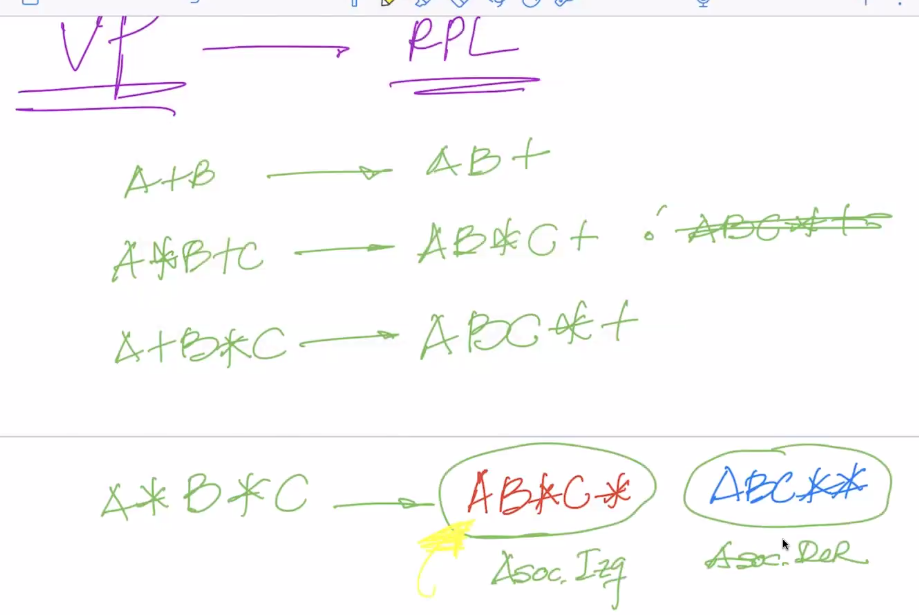 VP → RPL
A+B → AB+
A*B+C → AB*C+ ABC*+
A+B*C → ABC*+
A*B*C → AB*C* ABC**
Asoc. Izq Asoc. DeR